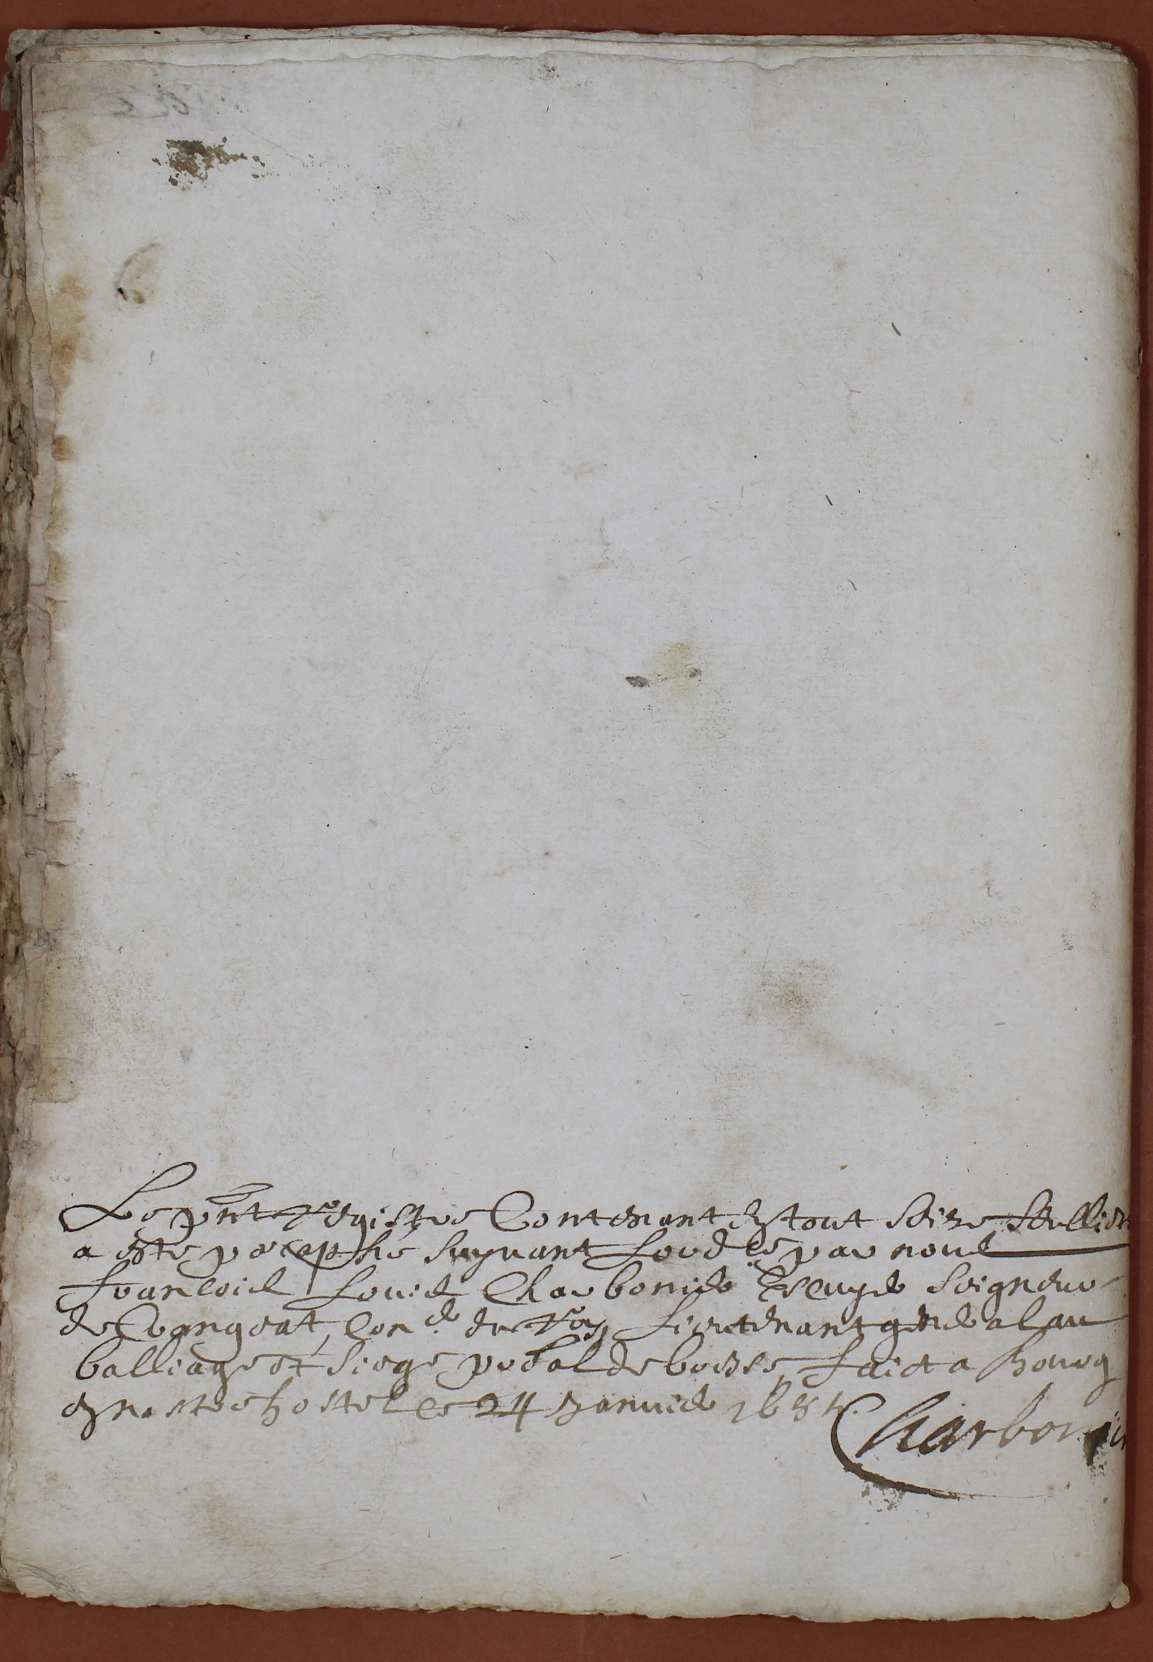 Le pñt Registre Contenant en tout seize feullietz
a esté paraphé suyvant Lord.ce par nous
Francois Louis Charbonier Escuyer Seigneur
de Crangeat, Con.er du Roy Lieutenant general au
balliage et siege p.dal de bresse, Faict a Bourg
en nostre hostel ce 24 Janvier
Charbonier